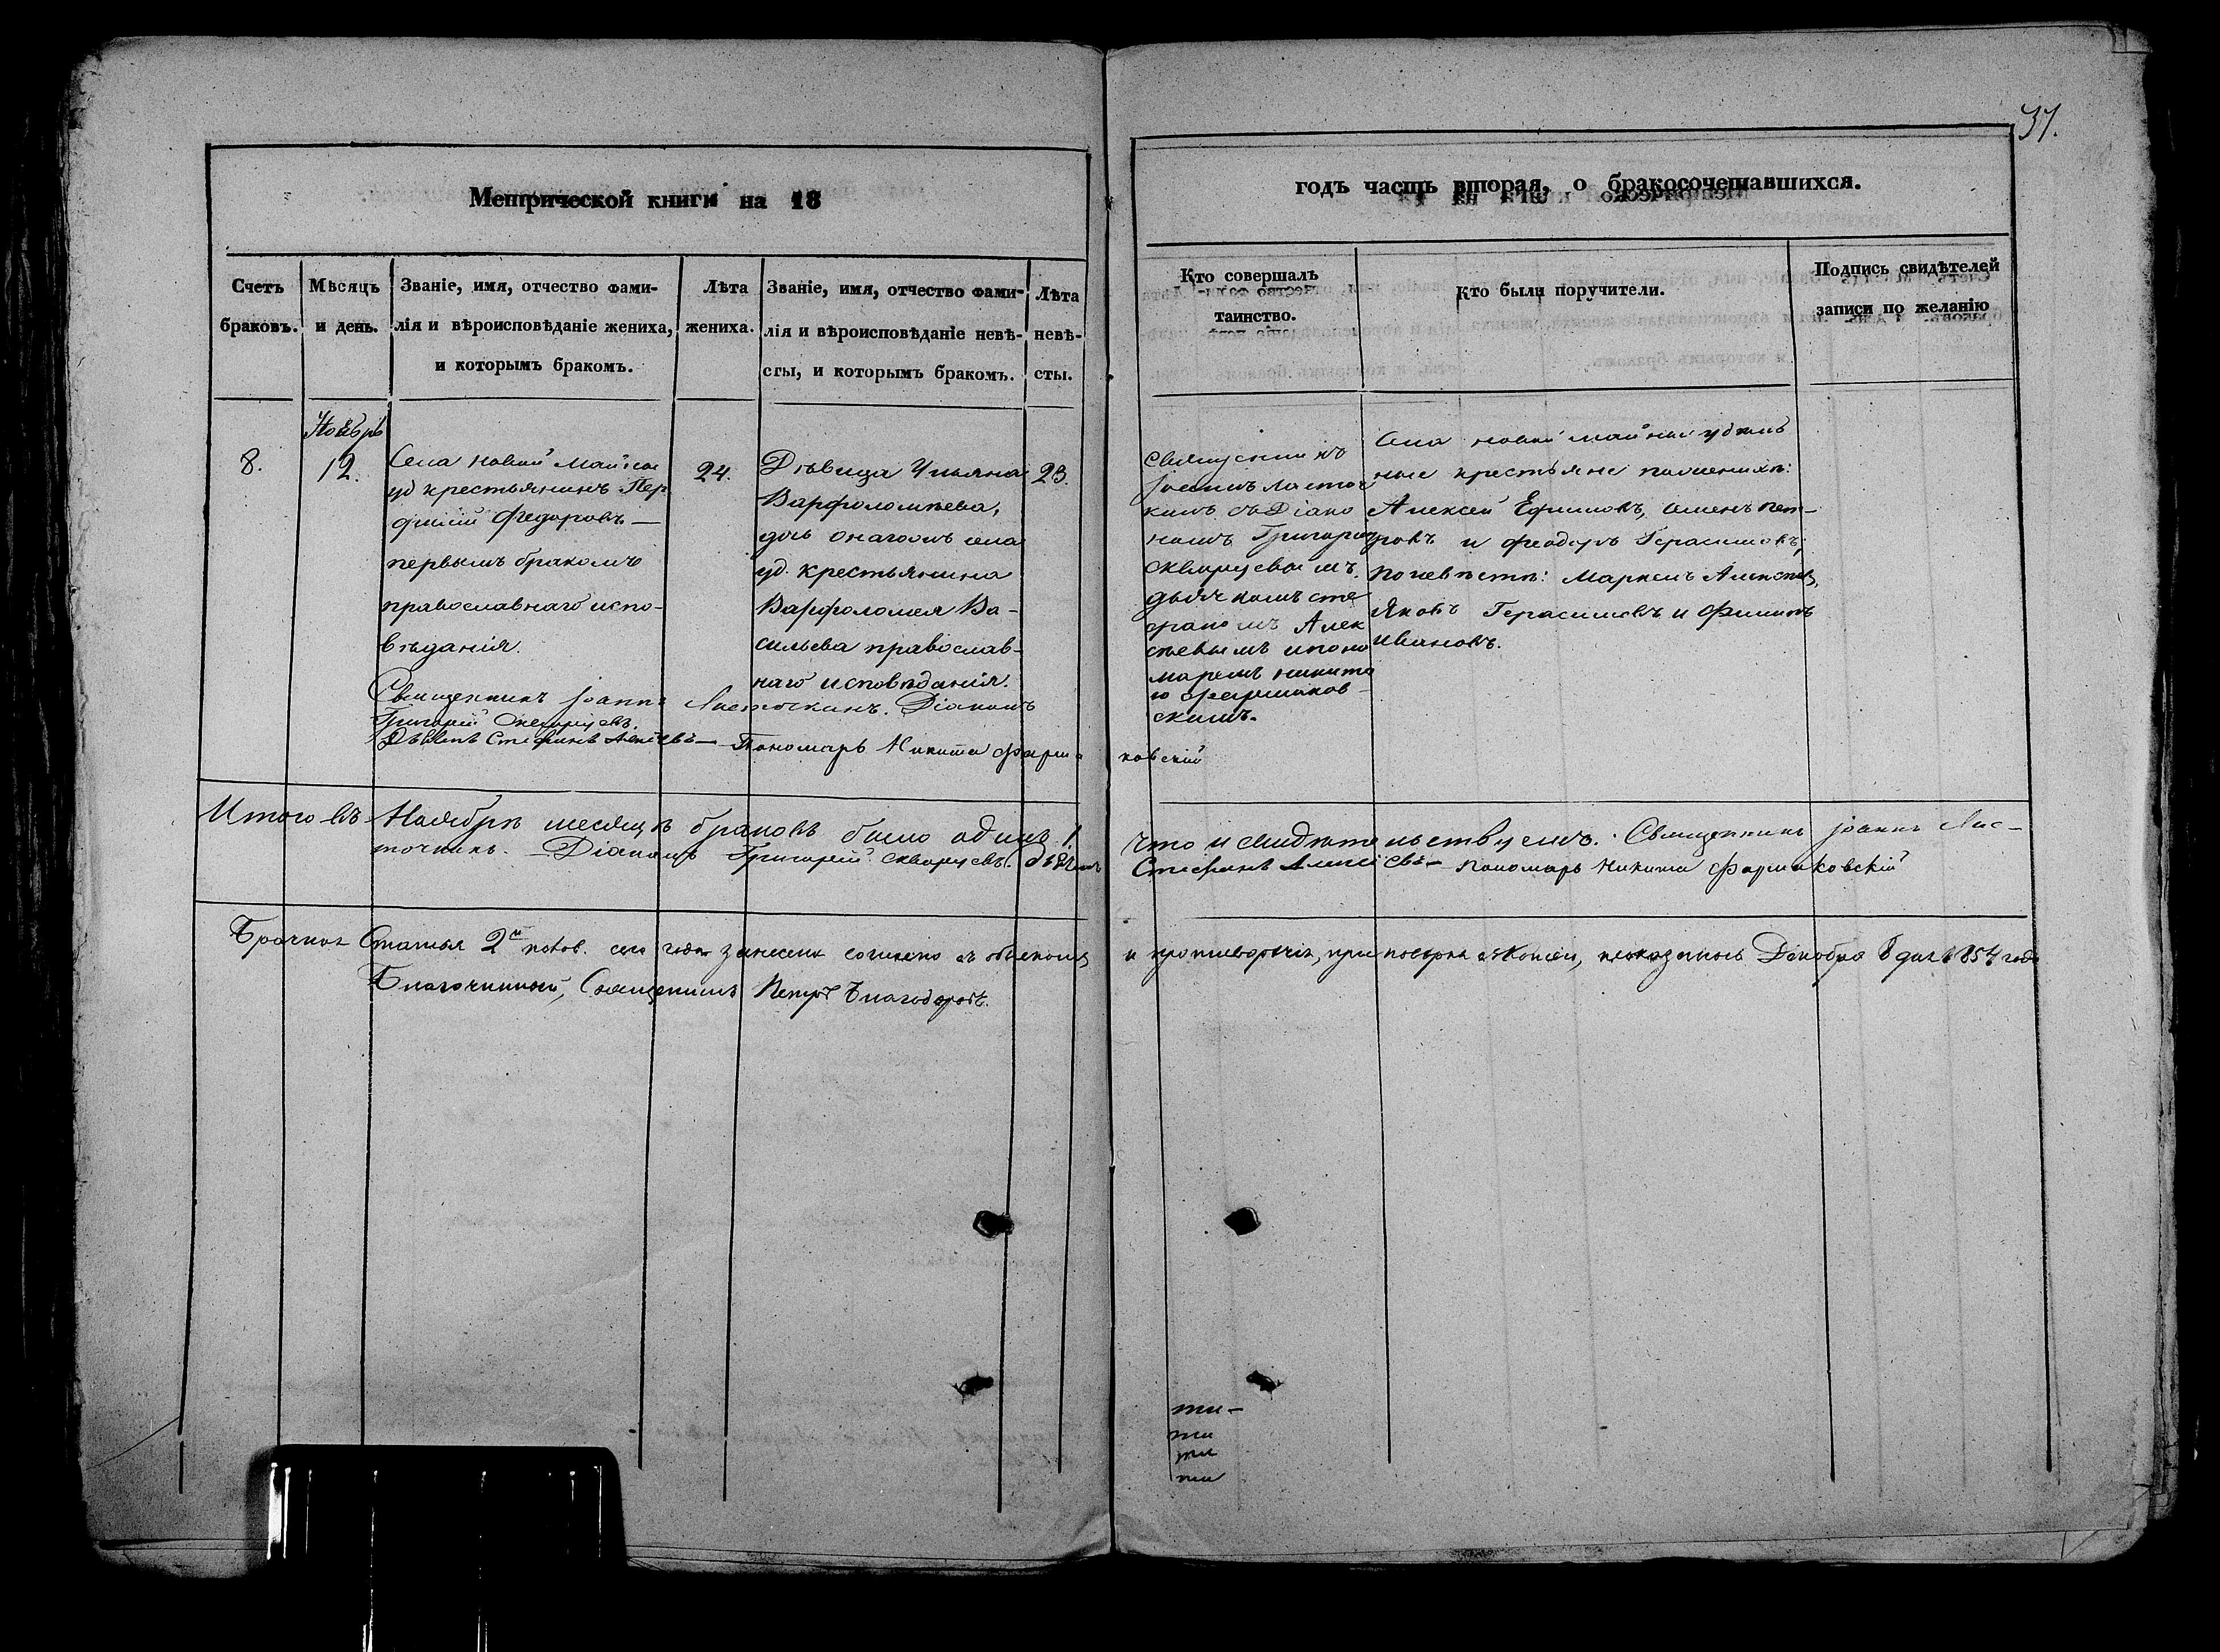 37.
Метрической книги на 18
годъ часть вторая, о бракосочетавшихся.
Счетъ браковъ.
Мѣсяцъ и день.
Званіе, имя, отчество фами-
лія и вѣроисповѣданіе жениха,
и которымъ бракомъ.
Лѣта жениха.
Званіе, имя, отчество фами-
лія и вѣроисповѣданіе невѣ-
сты, и которымъ бракомъ.
Лѣта невѣ-
сты.
Кто совершалъ
таинство.
Кто были поручители.
Подпись свидѣтелей
записи по желанію
8.
Ноябрь
12.
Села новой Майны
уд крестьянинъ Пер
филій Федоровъ —
первымъ бракомъ
православнаго испо-
вѣданія.
24.
Дѣвица Ульяна
Варфоломѣева,
дочь онагожъ села
уд. крестьянина
Варфоломея Ва-
сильева православ-
наго исповѣданія.
23.
Священникъ
Іоаннъ Ласточ
кинъ съ Діако
номъ Григорие
Скворцевымъ.
дьячкомъ Сте
фаномъ Алек
сѣевымъ и поно
маремъ Никито
ю Фармаков-
скимъ.
Села новой Майны удѣль
ные крестьяне по женихѣ:
Алексей Ефимовъ, Семенъ Пет-
ровъ и Феодоръ Герасимовъ;
по невѣстѣ: Маркелъ Алексѣевъ,
Яковъ Герасимовъ и Филипъ
Ивановъ.
Священникъ Іоаннъ Ласточкинъ. Діаконъ
Григорій Скворцевъ.
Дьячекъ Стефанъ Алексѣевъ — Пономарь Никита Фарма
ковскій
Итого въ Ноябрѣ месяцѣ браковъ было одинъ 1. Что и свидѣтельствуемъ. Священникъ Іоаннъ Лас-
точкинъ. — Діаконъ Григорій Скворцевъ. Дьячекъ Стефанъ Алексѣевъ — Пономарь Никита Фармаковскій
Брачная Статья 2й полов. сего года занесена согласно съ обыскомъ и противорѣчія, при повѣркѣ съ Копіей, не оказалось Декабря 8 дня 1854 года
Благочинный, Священникъ Петръ Благодаровъ.
ти-
ти
ти
ти